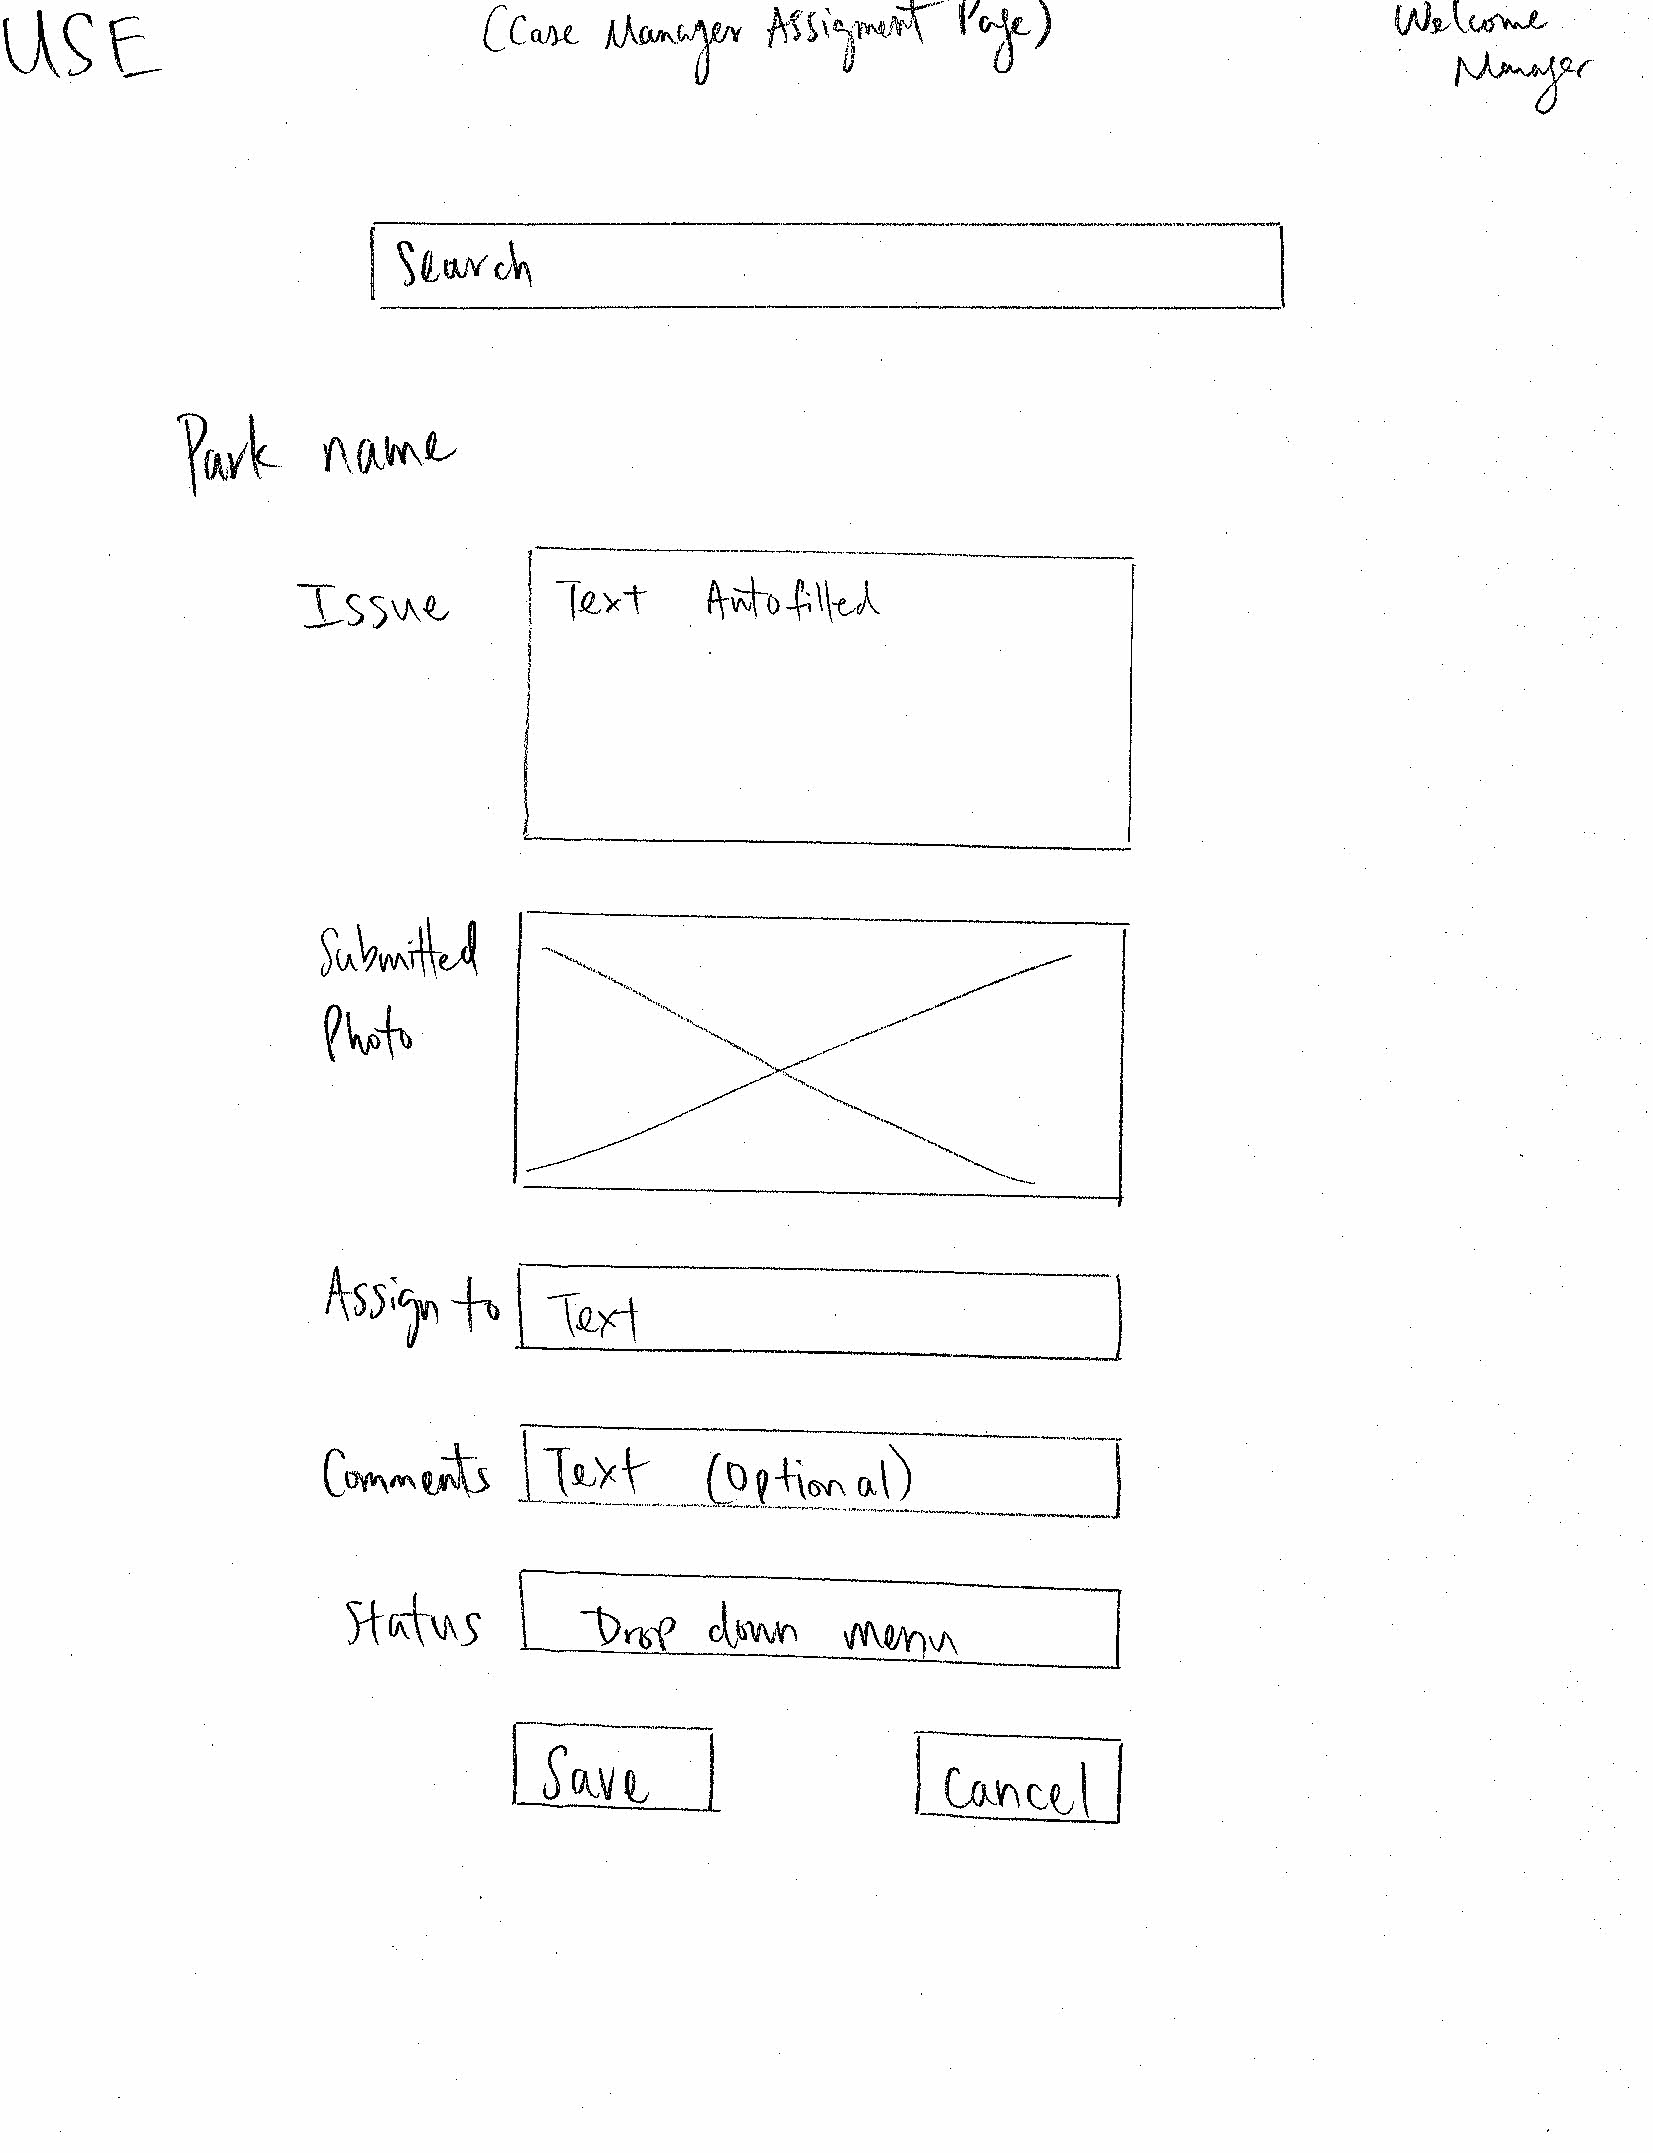 USE
(Case Manager Assigment Page)
Welcome
Manager
Search
Park name
Issue
Text Autofilled
Submitted
Photo
Assign to
Text
Comments
Text (Optional)
Status
Drop down menu
Save
Cancel